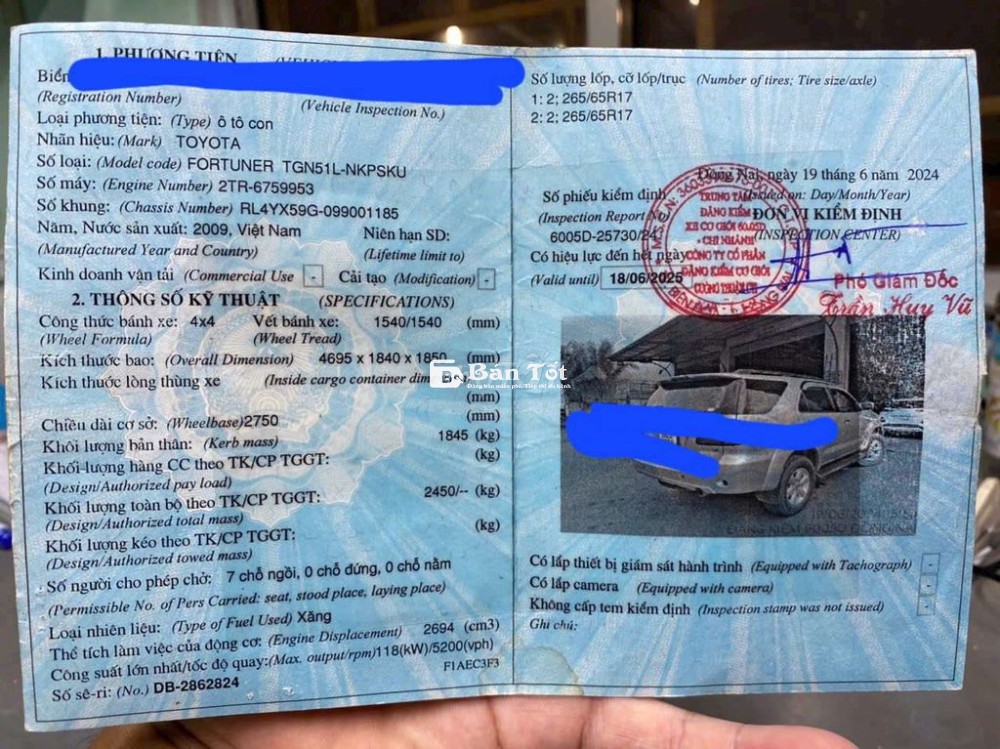 1. PHƯƠNG TIỆN
Biển
(Registration Number) (Vehicle Inspection No.)
Loại phương tiện: (Type) ô tô con
Nhãn hiệu: (Mark) TOYOTA
Số loại: (Model code) FORTUNER TGN51L-NKPSKU
Số máy: (Engine Number) 2TR-6759953
Số khung: (Chassis Number) RL4YX59G-099001185
Năm, Nước sản xuất: 2009, Việt Nam Niên hạn SD:
(Manufactured Year and Country) (Lifetime limit to)
Kinh doanh vận tải (Commercial Use - Cải tạo (Modification) -
2. THÔNG SỐ KỸ THUẬT (SPECIFICATIONS)
Công thức bánh xe: 4x4 Vết bánh xe: 1540/1540 (mm)
(Wheel Formula) (Wheel Tread)
Kích thước bao: (Overall Dimension) 4695 x 1840 x 1850 (mm)
Kích thước lòng thùng xe (Inside cargo container
(mm)
Chiều dài cơ sở: (Wheelbase) 2750 (mm)
Khối lượng bản thân: (Kerb mass) 1845 (kg)
Khối lượng hàng CC theo TK/CP TGGT: (kg)
(Design/Authorized pay load)
Khối lượng toàn bộ theo TK/CP TGGT: 2450/-- (kg)
(Design/Authorized total mass)
Khối lượng kéo theo TK/CP TGGT: (kg)
(Design/Authorized towed mass)
Số người cho phép chở: 7 chỗ ngồi, 0 chỗ đứng, 0 chỗ nằm
(Permissible No. of Pers Carried: seat, stood place, laying place)
Loại nhiên liệu: (Type of Fuel Used) Xăng
Thể tích làm việc của động cơ: (Engine Displacement) 2694 (cm3)
Công suất lớn nhất/tốc độ quay:(Max. output/rpm)118(kW)/5200(vph)
F1AEC3F3
Số sê-ri: (No.) DB-2862824
Số lượng lốp, cỡ lốp/trục (Number of tires; Tire size/axle)
1: 2; 265/65R17
2: 2; 265/65R17
Đồng Nai, ngày 19 tháng 6 năm 2024
(Issued on: Day/Month/Year)
Số phiếu kiểm định
(Inspection Report No) ĐƠN VỊ KIỂM ĐỊNH
6005D-25730/24 (INSPECTION CENTER)
Có hiệu lực đến hết ngày
(Valid until) 18/06/2025
TRUNG TÂM
ĐĂNG KIỂM
XE CƠ GIỚI 60.05D
- CHI NHÁNH
CÔNG TY CỔ PHẦN
ĐĂNG KIỂM CƠ GIỚI
Phó Giám Đốc
Trần Huy Vũ
Bán Tốt
Có lắp thiết bị giám sát hành trình (Equipped with Tachograph) -
Có lắp camera (Equipped with camera) -
Không cấp tem kiểm định (Inspection stamp was not issued) -
Ghi chú: